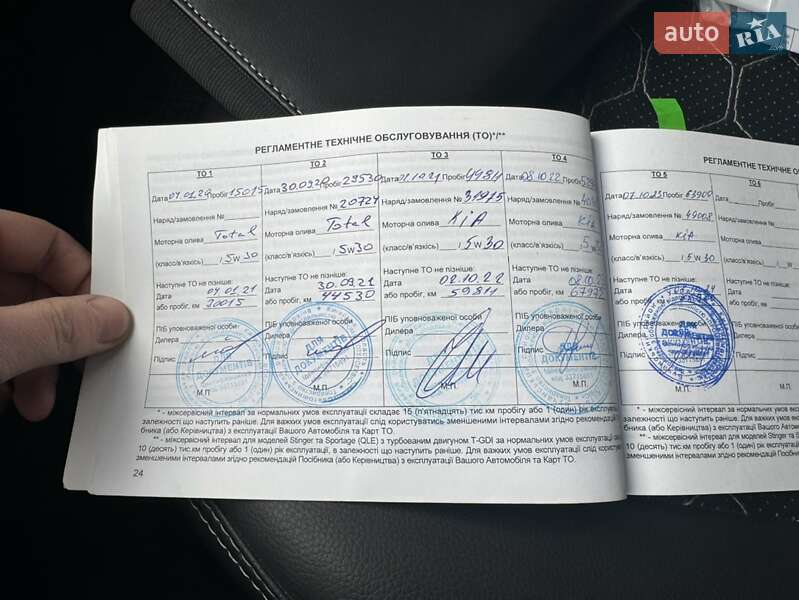 auto RIA
РЕГЛАМЕНТНЕ ТЕХНІЧНЕ ОБСЛУГОВУВАННЯ (ТО)*/**
ТО 1
Дата 04.01.20 Пробіг 15015
Наряд/замовлення №
Моторна олива Total
(класс/в'язкість) , 5w30
Наступне ТО не пізніше:
Дата 04.01.21
або пробіг, км 30015
ПІБ уповноваженої особи
Дилера
Підпис
М.П.
ТО 2
Дата 30.09.20 Пробіг 29530
Наряд/замовлення № 20724
Моторна олива Total
(класс/в'язкість) , 5w30
Наступне ТО не пізніше:
Дата 30.09.21
або пробіг, км 44530
ДЛЯ ДОКУМЕНТІВ
ТО 3
Дата 02.10.21 Пробіг 44984
Наряд/замовлення № 31415
Моторна олива KiA
(класс/в'язкість) , 5w30
Наступне ТО не пізніше:
Дата 02.10.22
або пробіг, км 59.84
ПІБ уповноваженої особи
Дилера
Підпис
М.П.
ТО 4
Дата 08.10.22 Пробіг
Наряд/замовлення №
Моторна олива Kia
(класс/в'язкість) , 5w
Наступне ТО не пізніше:
Дата
або пробіг, км
ДОКУМЕНТІВ
М.П.
* - міжсервісний інтервал за нормальних умов експлуатації складає 15 (п'ятнадцять) тис.км пробігу або 1 (один) рік експлуатації
залежності що наступить раніше. Для важких умов експлуатації слід користуватись зменшеними інтервалами згідно рекомендацій
бника (або Керівництва) з експлуатації Вашого Автомобіля та Карт ТО.
** - міжсервісний інтервал для моделей Stinger та Sportage (QLE) з турбованим двигуном T-GDI за нормальних умов експлуатації
10 (десять) тис.км пробігу або 1 (один) рік експлуатації, в залежності що наступить раніше. Для важких умов експлуатації слід
зменшеними інтервалами згідно рекомендацій Посібника (або Керівництва) з експлуатації Вашого Автомобіля та Карт ТО.
24
РЕГЛАМЕНТНЕ ТЕХНІЧНЕ
ТО 5
Дата 07.10.23 Пробіг 63909
Наряд/замовлення № 49008
Моторна олива KiA
(класс/в'язкість) , 5w30
Наступне ТО не пізніше:
Дата
або пробіг, км
ПІБ уповноваженої
Дилера
Підпис
ДЛЯ ДОКУМЕНТІВ
М.П.
ТО 6
Дата Пробіг
Наряд/замовлення
Моторна олива
(класс/в'язкість)
Наступне ТО не
Дата
або пробіг, км
Підпис
* - міжсервісний інтервал за нормальних умов
залежності що наступить раніше. Для важких
бника (або Керівництва) з експлуатації Вашого
** - міжсервісний інтервал для моделей Stinger та
10 (десять) тис.км пробігу або 1 (один) рік експлуатації
зменшеними інтервалами згідно рекомендацій